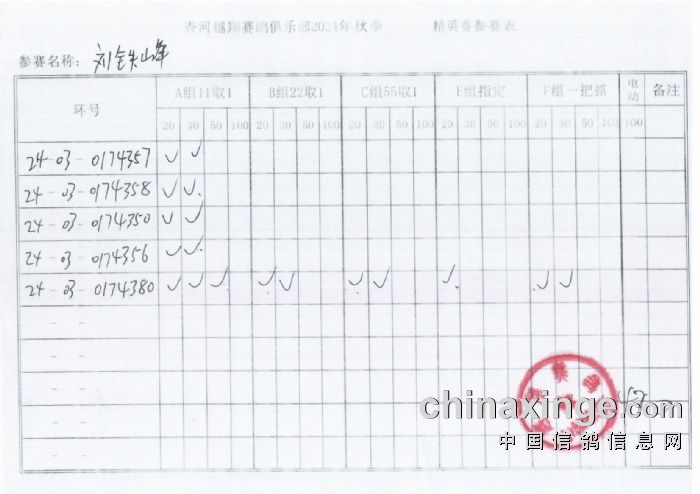 香河越翔赛鸽俱乐部2024年秋季 精英赛参赛表
参赛名称: 刘铁山峰
环号 A组11取1 B组22取1 C组55取1 E组指定 F组一把抓 电动 备注
20 30 50 100 20 30 50 100 20 30 50 100 20 30 50 100 20 30 50 100 100
24-03-0174357 ✓ ✓
24-03-0174358 ✓ ✓
24-03-0174350 ✓ ✓
24-03-0174356 ✓ ✓
24-03-0174380 ✓ ✓ ✓ ✓ ✓ ✓ ✓ ✓ ✓ ✓
- -
- -
- -
- -
- -
chinaxinge.com
中国信鸽信息网